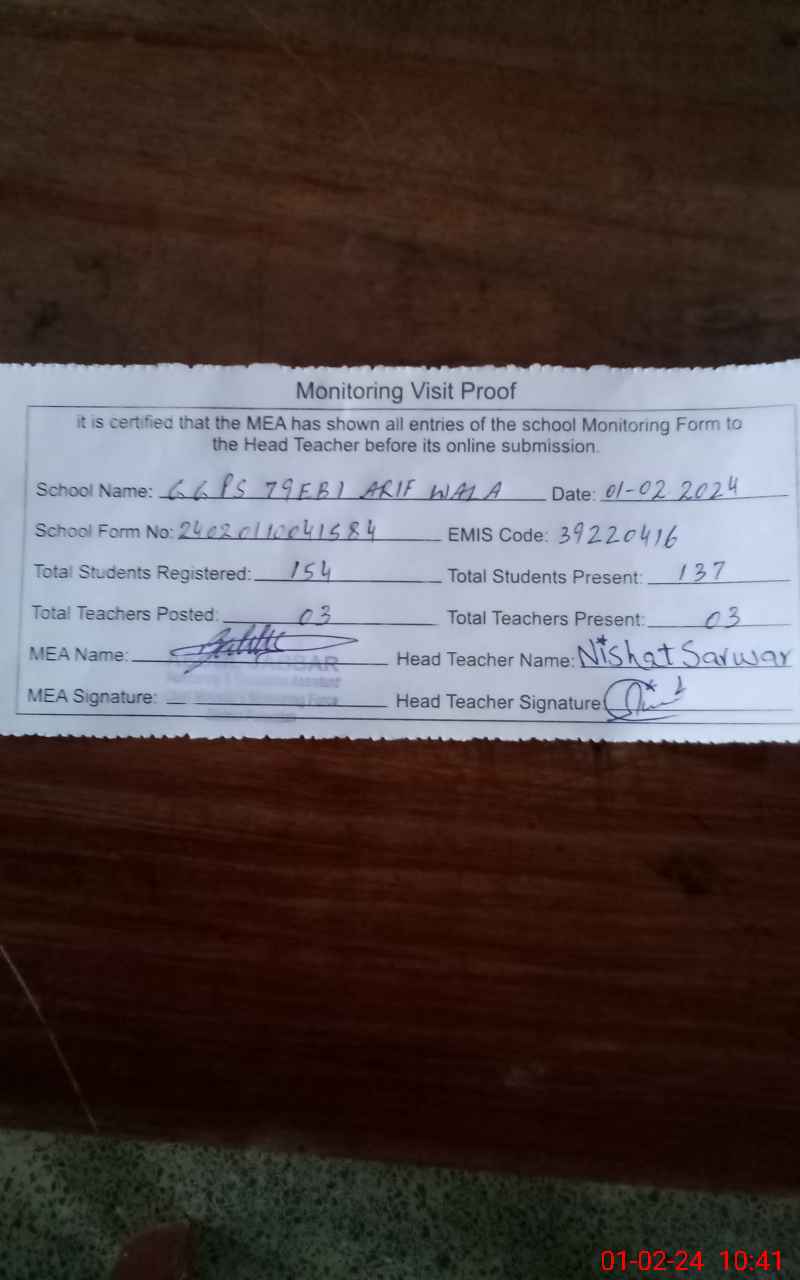 Monitoring Visit Proof
it is certified that the MEA has shown all entries of the school Monitoring Form to
the Head Teacher before its online submission.
School Name: GGPS 79EB1 ARIF WALA Date: 01-02 2024
School Form No: 24020110041584 EMIS Code: 39220416
Total Students Registered: 154 Total Students Present: 137
Total Teachers Posted: 03 Total Teachers Present: 03
MEA Name: Head Teacher Name: Nishat Sarwar
MEA Signature: Head Teacher Signature
01-02-24 10:41